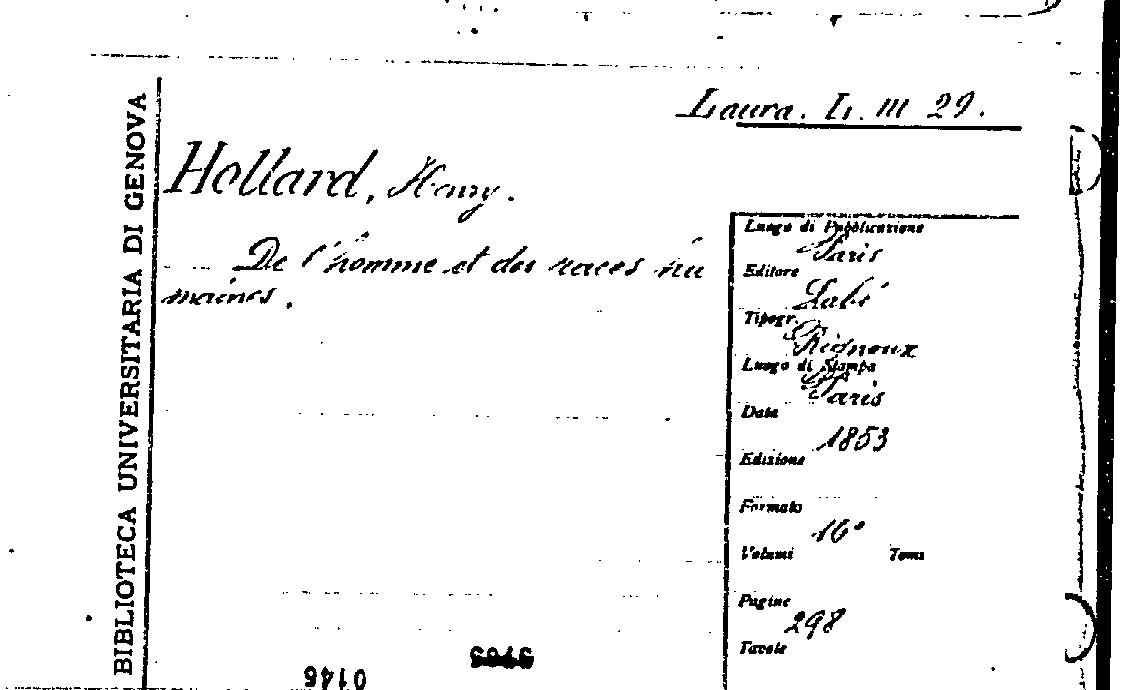 Laura. L. III 29.
BIBLIOTECA UNIVERSITARIA DI GENOVA
Hollard, Henry.
De l'homme et des races hu
maines.
Luogo di Pubblicazione
Paris
Editore
Labé
Tipogr.
Rignoux
Luogo di Stampa
Paris
Data
1853
Edizione
Formato
16°
Volumi Tomi
Pagine
298
Tavole
0146